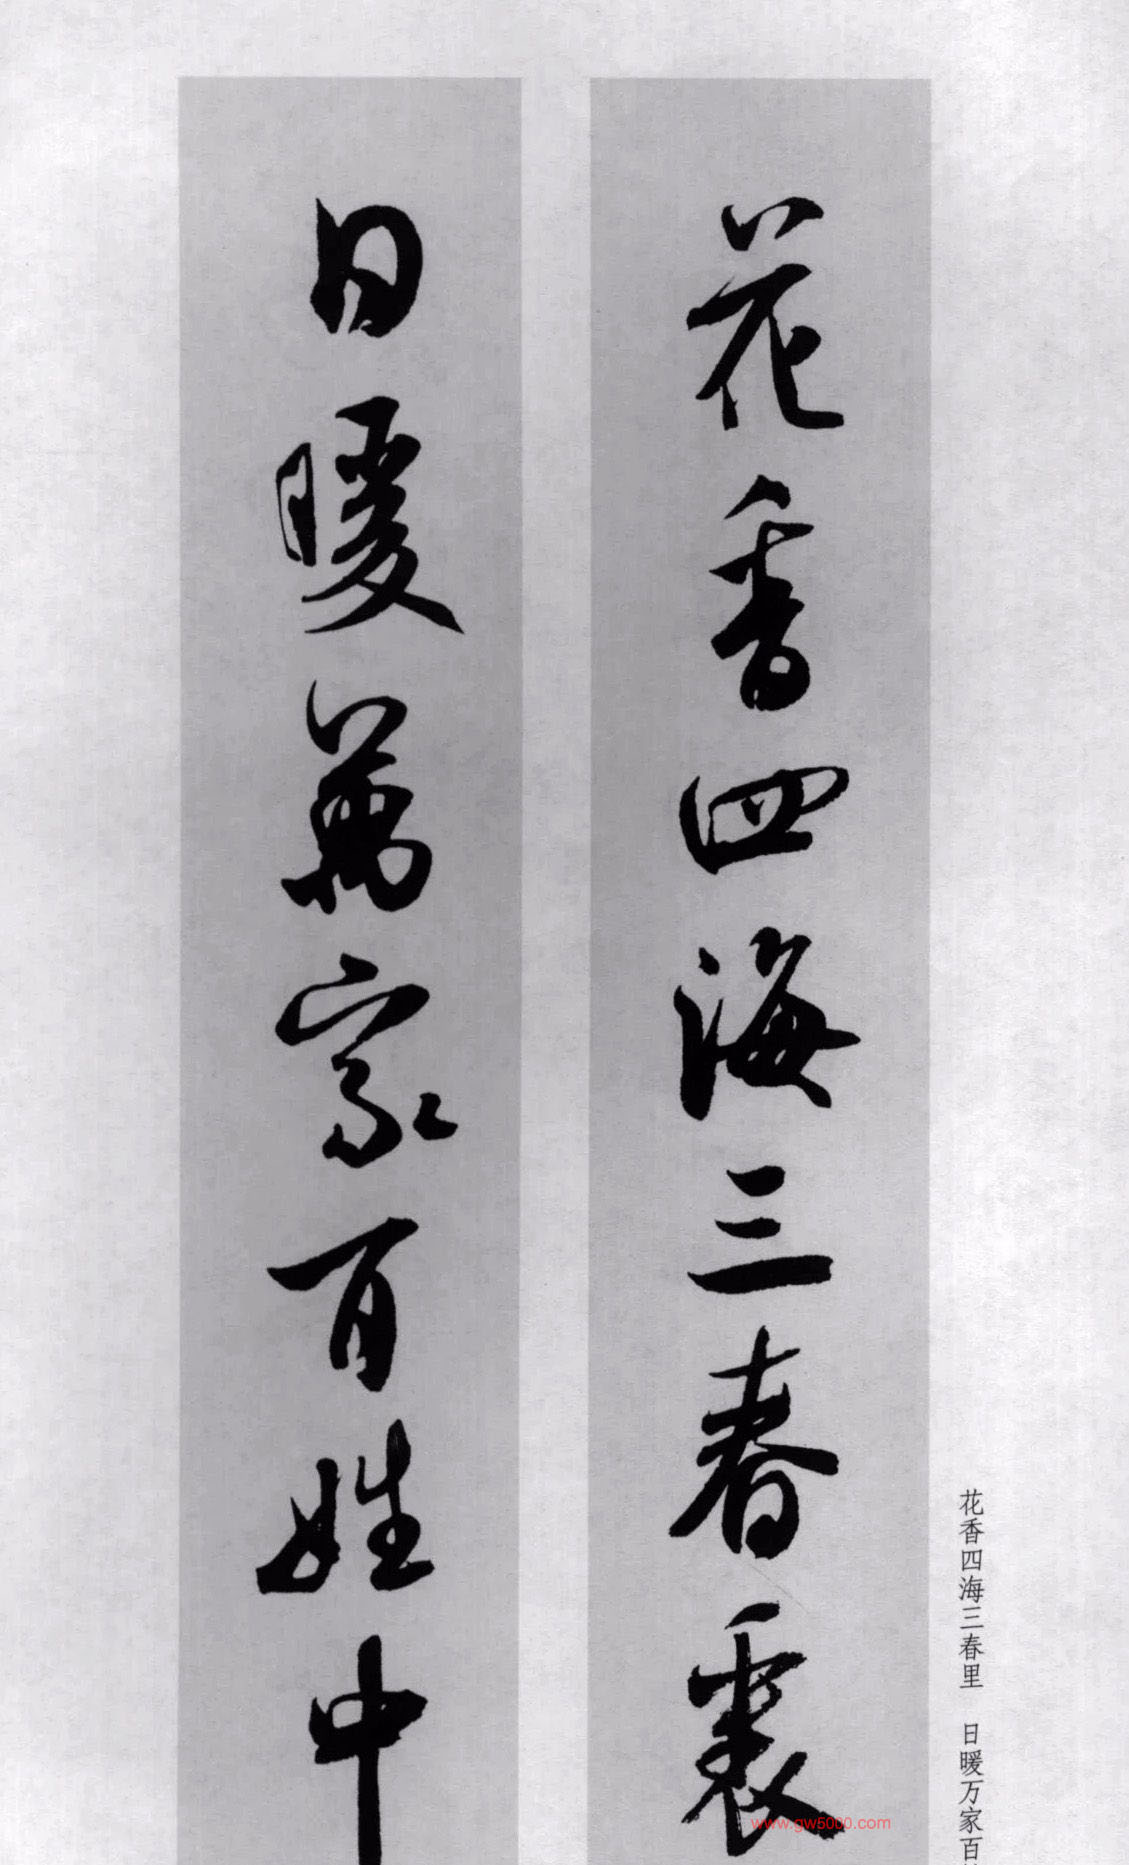 花香四海三春裏
日暖萬家百姓中
花香四海三春里 日暖万家百
www.gw5000.com